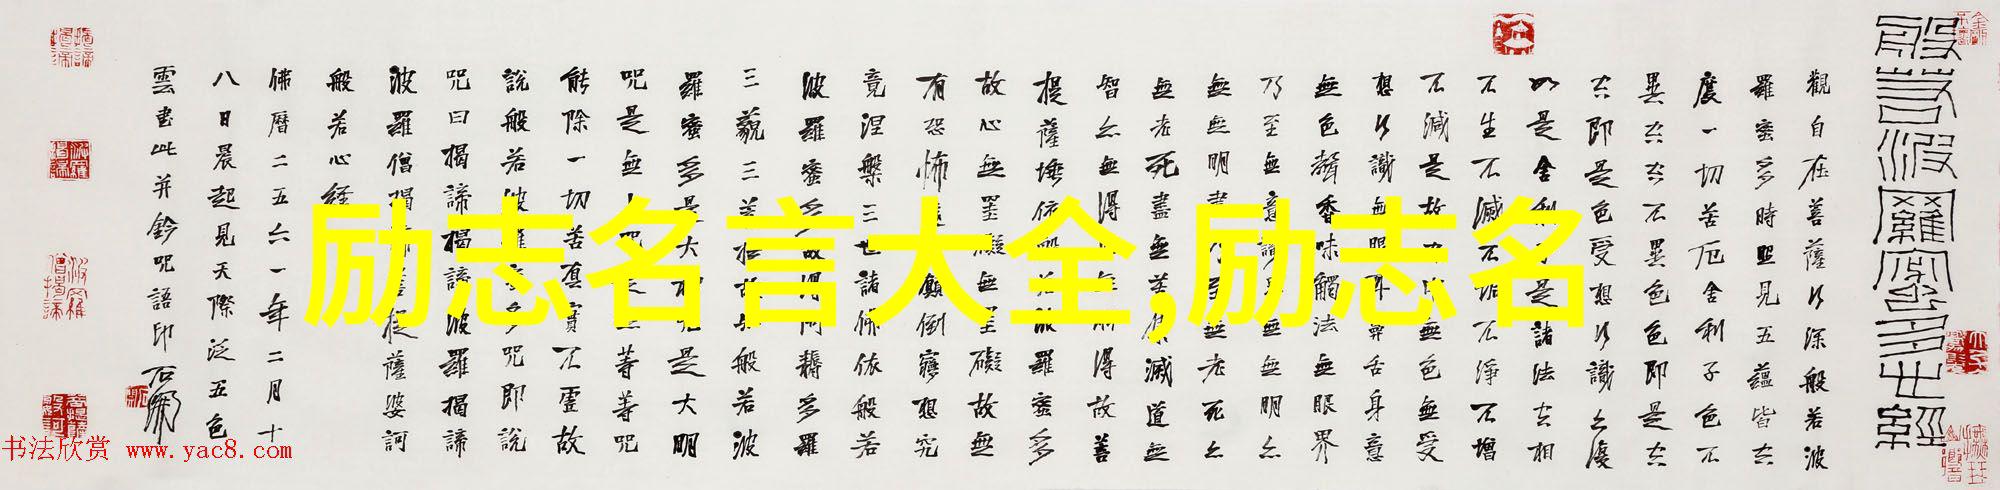 般若波羅蜜多心經
觀自在菩薩行深般若波
羅蜜多時照見五蘊皆空
度一切苦厄舍利子色不
異空空不異色色即是空
空即是色受想行識亦復
如是舍利子是諸法空相
不生不滅不垢不淨不增
不減是故空中無色無受
想行識無眼耳鼻舌身意
無色聲香味觸法無眼界
乃至無意識界無無明亦
無無明盡乃至無老死亦
無老死盡無苦集滅道無
智亦無得以無所得故菩
提薩埵依般若波羅蜜多
故心無罣礙無罣礙故無
有恐怖遠離顛倒夢想究
竟涅槃三世諸佛依般若
波羅蜜多故得阿耨多羅
三藐三菩提故知般若波
羅蜜多是大神咒是大明
咒是無上咒是無等等咒
能除一切苦真實不虛故
說般若波羅蜜多咒即說
咒曰揭諦揭諦波羅揭諦
波羅僧揭諦菩提薩婆訶
般若心經
佛曆二五六一年二月十
八日晨起見天際泛五色
雲書此并鈐咒語印 石開
励志名言大全,励志名
书法欣赏 www.yac8.com